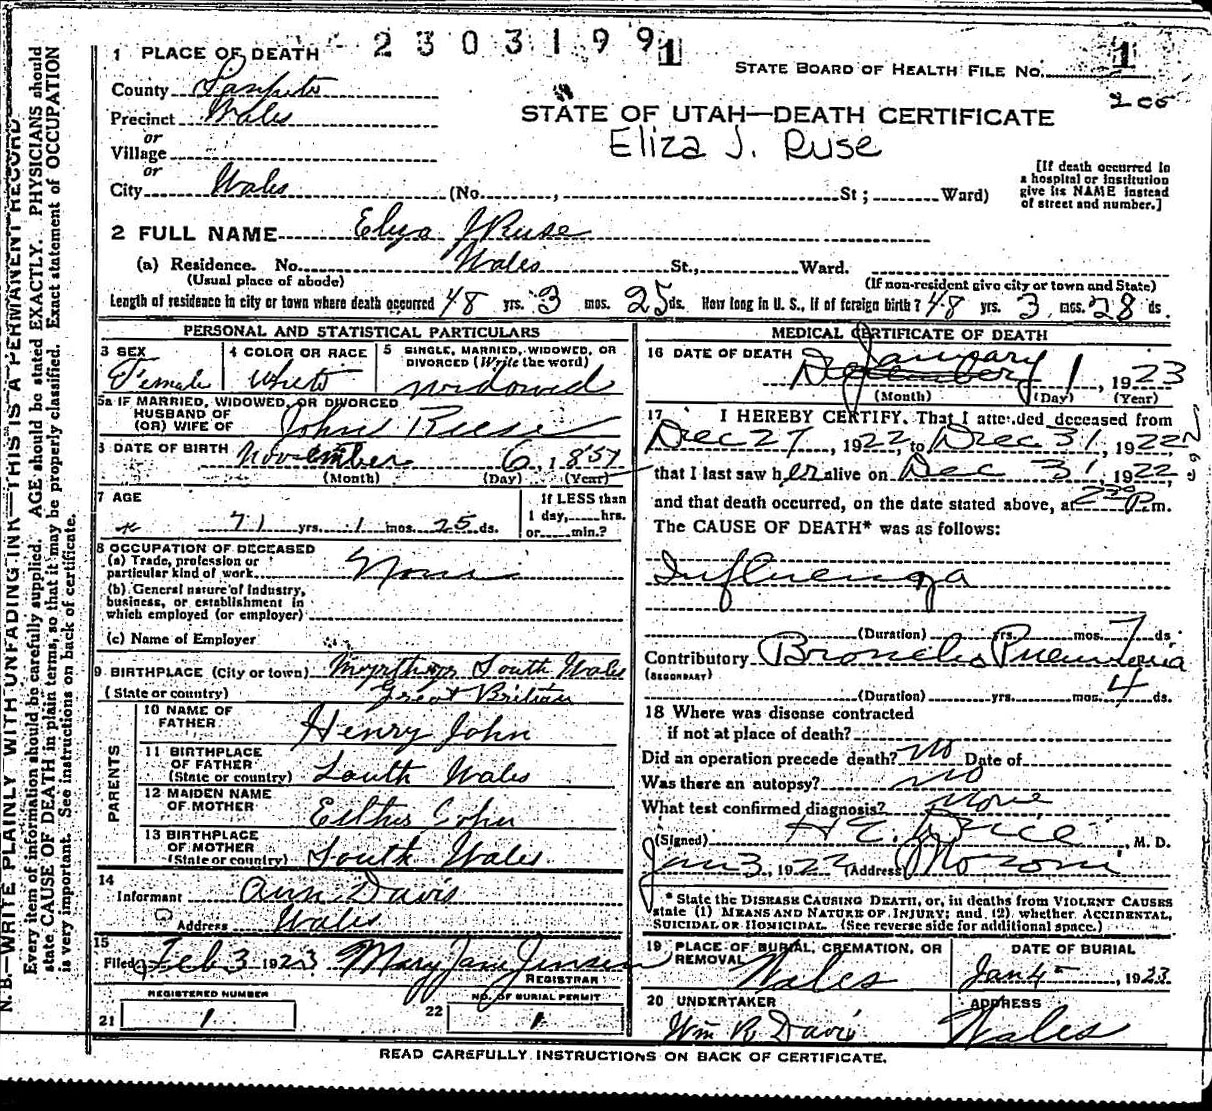 2303199 1
1 PLACE OF DEATH
STATE BOARD OF HEALTH FILE NO. 1
200
County Sanpete
Precinct Wales
or
Village
or
City Wales (No. , St ; Ward)
STATE OF UTAH—DEATH CERTIFICATE
Eliza J. Ruse
[If death occurred in
a hospital or institution
give its NAME instead
of street and number.]
2 FULL NAME Eliza J Ruse
(a) Residence. No. Wales St., Ward.
(Usual place of abode) (If non-resident give city or town and State)
Length of residence in city or town where death occurred 48 yrs. 3 mos. 25 ds. How long in U. S., if of foreign birth? 48 yrs. 3 mos. 28 ds.
PERSONAL AND STATISTICAL PARTICULARS
3 SEX
Female
4 COLOR OR RACE
White
5 SINGLE, MARRIED, WIDOWED, OR
DIVORCED (Write the word)
Widowed
5a IF MARRIED, WIDOWED, OR DIVORCED
HUSBAND OF
(OR) WIFE OF John Reese
6 DATE OF BIRTH November 6, 1851
(Month) (Day) (Year)
7 AGE
71 yrs. 1 mos. 25 ds.
If LESS than
1 day, hrs.
or min.?
8 OCCUPATION OF DECEASED
(a) Trade, profession or
particular kind of work None
(b) General nature of Industry,
business, or establishment in
which employed (or employer)
(c) Name of Employer
9 BIRTHPLACE (City or town) South Wales
(State or country) Great Britian
PARENTS
10 NAME OF
FATHER Henry John
11 BIRTHPLACE
OF FATHER
(State or country) South Wales
12 MAIDEN NAME
OF MOTHER John
13 BIRTHPLACE
OF MOTHER
(State or country) South Wales
14
Informant Ann Davis
Address Wales
15
Filed Feb 3 1923 Mary Jane Jensen
REGISTRAR
REGISTERED NUMBER
21 1
NO. OF BURIAL PERMIT
22 1
MEDICAL CERTIFICATE OF DEATH
January
16 DATE OF DEATH December 1, 1923
(Month) (Day) (Year)
17 I HEREBY CERTIFY, That I attended deceased from
Dec 27, 1922, to Dec 31, 1922
that I last saw her alive on Dec 31, 1922,
and that death occurred, on the date stated above, at 2 P.m.
The CAUSE OF DEATH* was as follows:
Influenza
(Duration) yrs. mos. 7 ds
Contributory Broncho Pneumonia
(SECONDARY)
(Duration) yrs. mos. 4 ds.
18 Where was disease contracted
if not at place of death?
Did an operation precede death? No Date of
Was there an autopsy? no
What test confirmed diagnosis? None
(Signed) , M. D.
Jan 3, 1923 (Address) Moroni
* State the DISEASE CAUSING DEATH, or, in deaths from VIOLENT CAUSES
state (1) MEANS AND NATURE OF INJURY; and (2) whether ACCIDENTAL,
SUICIDAL OR HOMICIDAL. (See reverse side for additional space.)
19 PLACE OF BURIAL, CREMATION, OR
REMOVAL
Wales
DATE OF BURIAL
Jan 4, 1923
20 UNDERTAKER
Wm R Davis
ADDRESS
Wales
READ CAREFULLY INSTRUCTIONS ON BACK OF CERTIFICATE.
N. B.—WRITE PLAINLY WITH UNFADING INK—THIS IS A PERMANENT RECORD
Every item of information should be carefully supplied. AGE should be stated EXACTLY. PHYSICIANS should
state CAUSE OF DEATH in plain terms, so that it may be properly classified. Exact statement of OCCUPATION
is very important. See instructions on back of certificate.